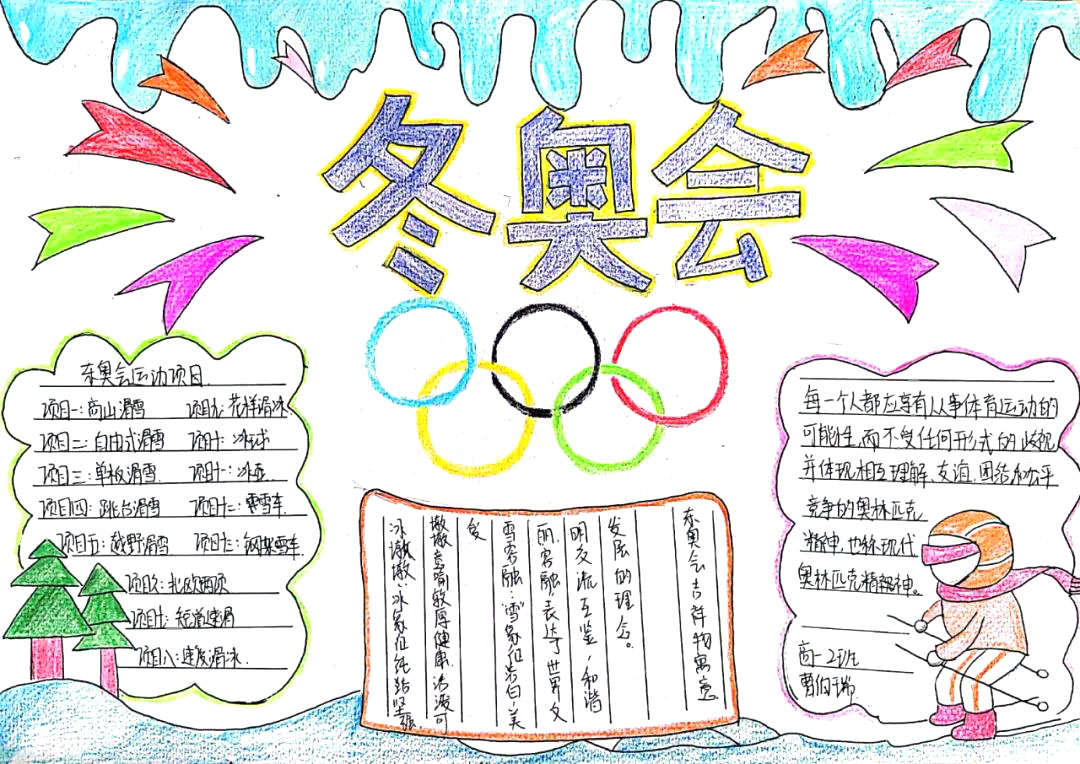 冬奥会
冬奥会运动项目
项目一:高山滑雪 项目九:花样滑冰
项目二:自由式滑雪 项目十:冰球
项目三:单板滑雪 项目十一:冰壶
项目四:跳台滑雪 项目十二:雪车
项目五:越野滑雪 项目十三:钢架雪车
项目六:北欧两项
项目七:短道速滑
项目八:速度滑冰
冬奥会吉祥物寓意
冰墩墩:冰象征纯洁坚强
墩墩意喻敦厚健康活泼可
爱
雪容融:"雪"象征洁白、美
丽.容融,表达了世界文
明交流互鉴,和谐
发展的理念。
每一个人都应享有从事体育运动的
可能性,而不受任何形式的歧视
并体现相互理解、友谊、团结和公平
竞争的奥林匹克
精神,也称现代
奥林匹克精神。
高一2班